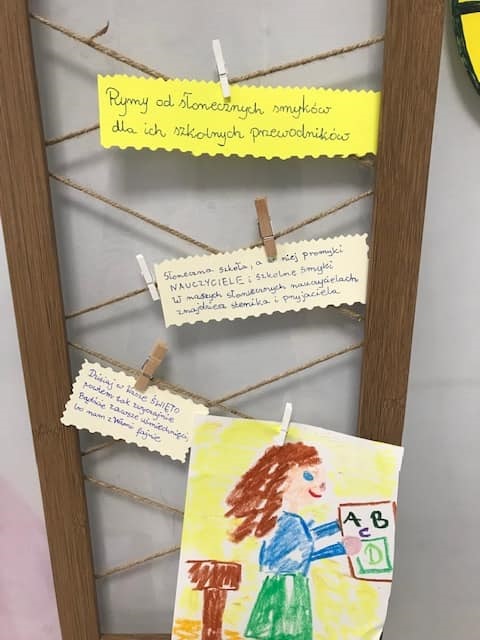 Rymy od słonecznych smyków
dla ich szkolnych przewodników
Słoneczna szkoła, a w niej promyki
NAUCZYCIELE i szkolne smyki
W naszych słonecznych nauczycielach
znajdziesz sternika i przyjaciela
Dzisiaj w Wasze ŚWIĘTO
powiem tak zwyczajnie
Bądźcie zawsze uśmiechnięci,
bo nam z Wami fajnie
A B
C
D